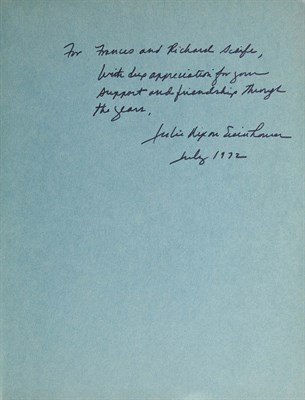 For Frances and Richard Scaife,
With deep appreciation for your
support and friendship through
the years.
Julie Nixon Eisenhower
July 1972